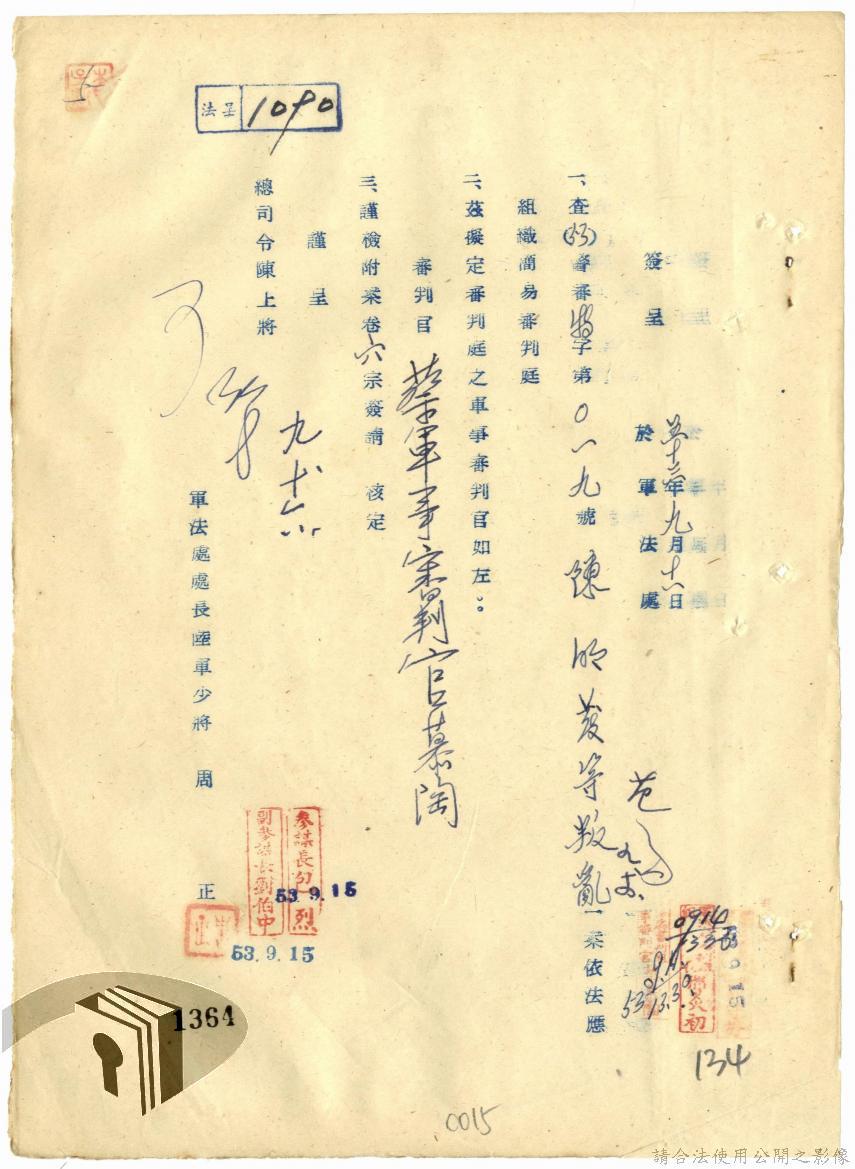 法呈 1090
簽呈
五十三年九月十日
於軍法處
一、查(53)警審特字第〇一九號陳明發等叛亂一案依法應
組織簡易審判庭
二、茲擬定審判庭之軍事審判官如左：
審判官 蔡軍事審判官慕陶
三、謹檢附案卷六宗簽請 核定
謹呈
總司令陳上將
九、十六
軍法處處長陸軍少將 周 正
參謀長 烈
53.9.15
副參謀長劉伯中
53.9.15
0914
1364
134
0015
請合法使用公開之影像